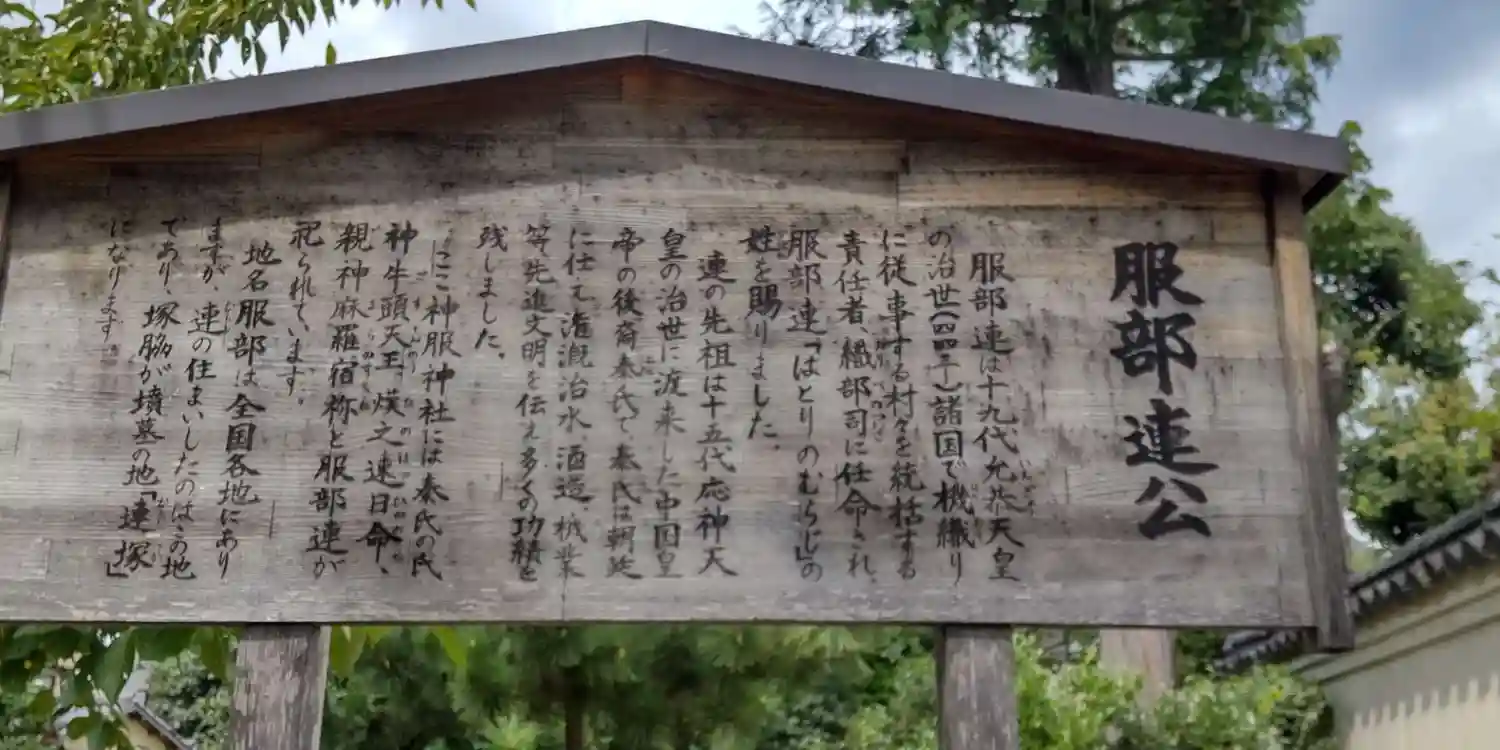 服部連公
服部連は十九代允恭天皇
の治世(四四〒)諸国で機織り
に従事する村々を統括する
責任者、織部司に任命され、
服部連「はとりのむらじ」の
姓を賜りました。
連の先祖は十五代応神天
皇の治世に渡来した中国皇
帝の後裔秦氏で、秦氏は朝廷
に仕えて潅漑治水、酒造、機業
等、先進文明を伝え多くの功績を
残しました。
ここ神服神社には秦氏の氏
神牛頭天王、熯之速日命、
親神麻羅宿祢と服部連が
祀られています。
地名服部は全国各地にあり
ますが、連の住まいしたのはこの地
であり、塚脇が墳墓の地「連塚」
になります。